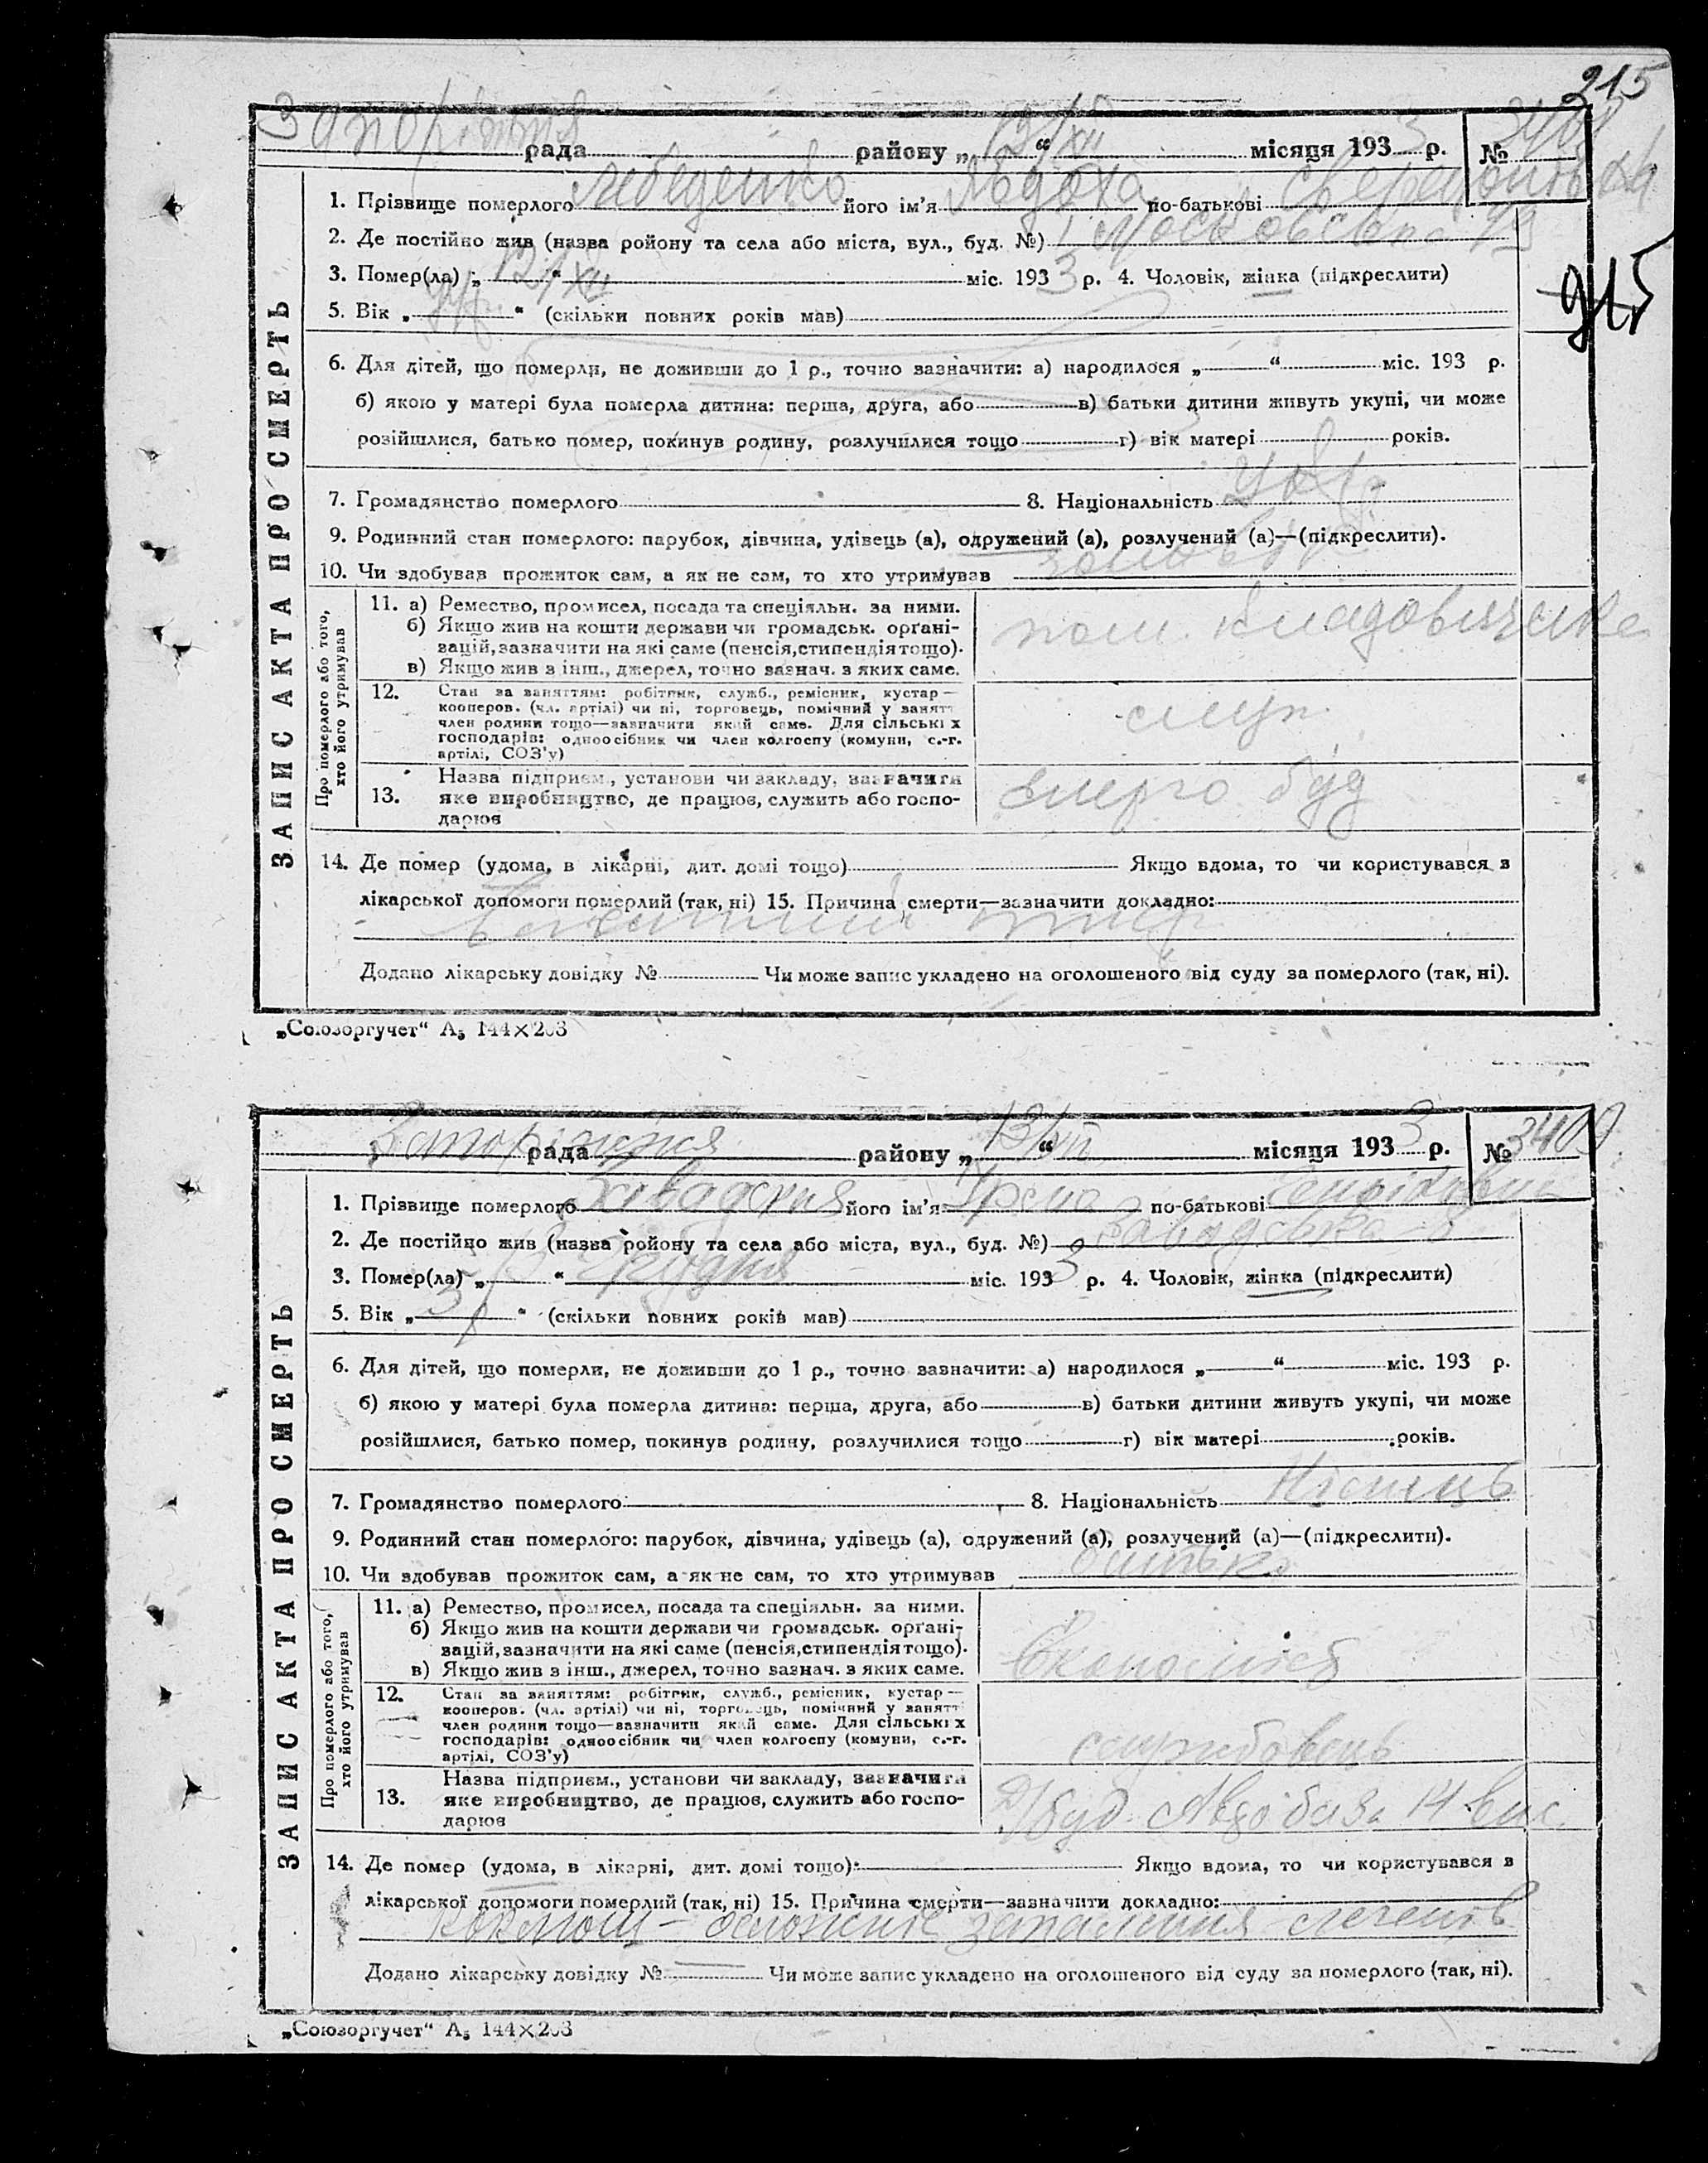 215
Запоріжжя рада району „13/XII“ місяця 1933 р. № 3408
ЗАПИС АКТА ПРО СМЕРТЬ
1. Прізвище померлого Лебеденко його ім'я Явдоха по-батькові
2. Де постійно жив (назва ройону та села або міста, вул., буд. №) Московська
3. Помер(ла) „12/XII“ міс. 1933 р. 4. Чоловік, жінка (підкреслити)
915
5. Вік „ “ (скільки повних років мав)
6. Для дітей, що померли, не доживши до 1 р., точно зазначити: а) народилося „ “ міс. 193 р.
б) якою у матері була померла дитина: перша, друга, або в) батьки дитини живуть укупі, чи може
розійшлися, батько помер, покинув родину, розлучилися тощо г) вік матері років.
7. Громадянство померлого 8. Національність Укр.
9. Родинний стан померлого: парубок, дівчина, удівець (а), одружений (а), розлучений (а)—(підкреслити).
10. Чи здобував прожиток сам, а як не сам, то хто утримував
Про померлого або того, хто його утримував
11. а) Ремество, промисел, посада та спеціяльн. за ними.
б) Якщо жив на кошти держави чи громадськ. орґані-
зацій, зазначити на які саме (пенсія, стипендія тощо).
в) Якщо жив з інш., джерел, точно зазнач. з яких саме.
пом. кладовщика
12. Стан за заняттям: робітник, служб., ремісник, кустар—
кооперов. (чл. артілі) чи ні, торговець, помічний у занятт
член родини тощо—зазначити який саме. Для сільських
господарів: одноосібник чи член колгоспу (комуни, с.-г.
артілі, СОЗ'у)
служ.
13. Назва підприєм., установи чи закладу, зазначити
яке виробництво, де працює, служить або госпо-
дарює
Енерго буд
14. Де помер (удома, в лікарні, дит. домі тощо) Якщо вдома, то чи користувався з
лікарської допомоги померлий (так, ні) 15. Причина смерти—зазначити докладно:
тиф
Додано лікарську довідку № Чи може запис укладено на оголошеного від суду за померлого (так, ні).
„Союзоргучет“ А₅ 144×203
Запоріжжя рада району „13/XII“ місяця 1933 р. № 3409
ЗАПИС АКТА ПРО СМЕРТЬ
1. Прізвище померлого його ім'я Ірена по-батькові
2. Де постійно жив (назва ройону та села або міста, вул., буд. №) Заводська 8
3. Помер(ла) „ “ Грудня міс. 1933 р. 4. Чоловік, жінка (підкреслити)
5. Вік „3 р“ (скільки повних років мав)
6. Для дітей, що померли, не доживши до 1 р., точно зазначити: а) народилося „ “ міс. 193 р.
б) якою у матері була померла дитина: перша, друга, або в) батьки дитини живуть укупі, чи може
розійшлися, батько помер, покинув родину, розлучилися тощо г) вік матері років.
7. Громадянство померлого 8. Національність Німець
9. Родинний стан померлого: парубок, дівчина, удівець (а), одружений (а), розлучений (а)—(підкреслити).
10. Чи здобував прожиток сам, а як не сам, то хто утримував батько
Про померлого або того, хто його утримував
11. а) Ремество, промисел, посада та спеціяльн. за ними.
б) Якщо жив на кошти держави чи громадськ. орґані-
зацій, зазначити на які саме (пенсія, стипендія тощо).
в) Якщо жив з інш., джерел, точно зазнач. з яких саме.
Економіст
12. Стан за заняттям: робітник, служб., ремісник, кустар—
кооперов. (чл. артілі) чи ні, торговець, помічний у занятт
член родини тощо—зазначити який саме. Для сільських
господарів: одноосібник чи член колгоспу (комуни, с.-г.
артілі, СОЗ'у)
службовець
13. Назва підприєм., установи чи закладу, зазначити
яке виробництво, де працює, служить або госпо-
дарює
Д/буд. Автобаза 14
14. Де помер (удома, в лікарні, дит. домі тощо): Якщо вдома, то чи користувався з
лікарської допомоги померлий (так, ні) 15. Причина смерти—зазначити докладно:
Коклюш – запалення легенів
Додано лікарську довідку № Чи може запис укладено на оголошеного від суду за померлого (так, ні).
„Союзоргучет“ А₅ 144×203